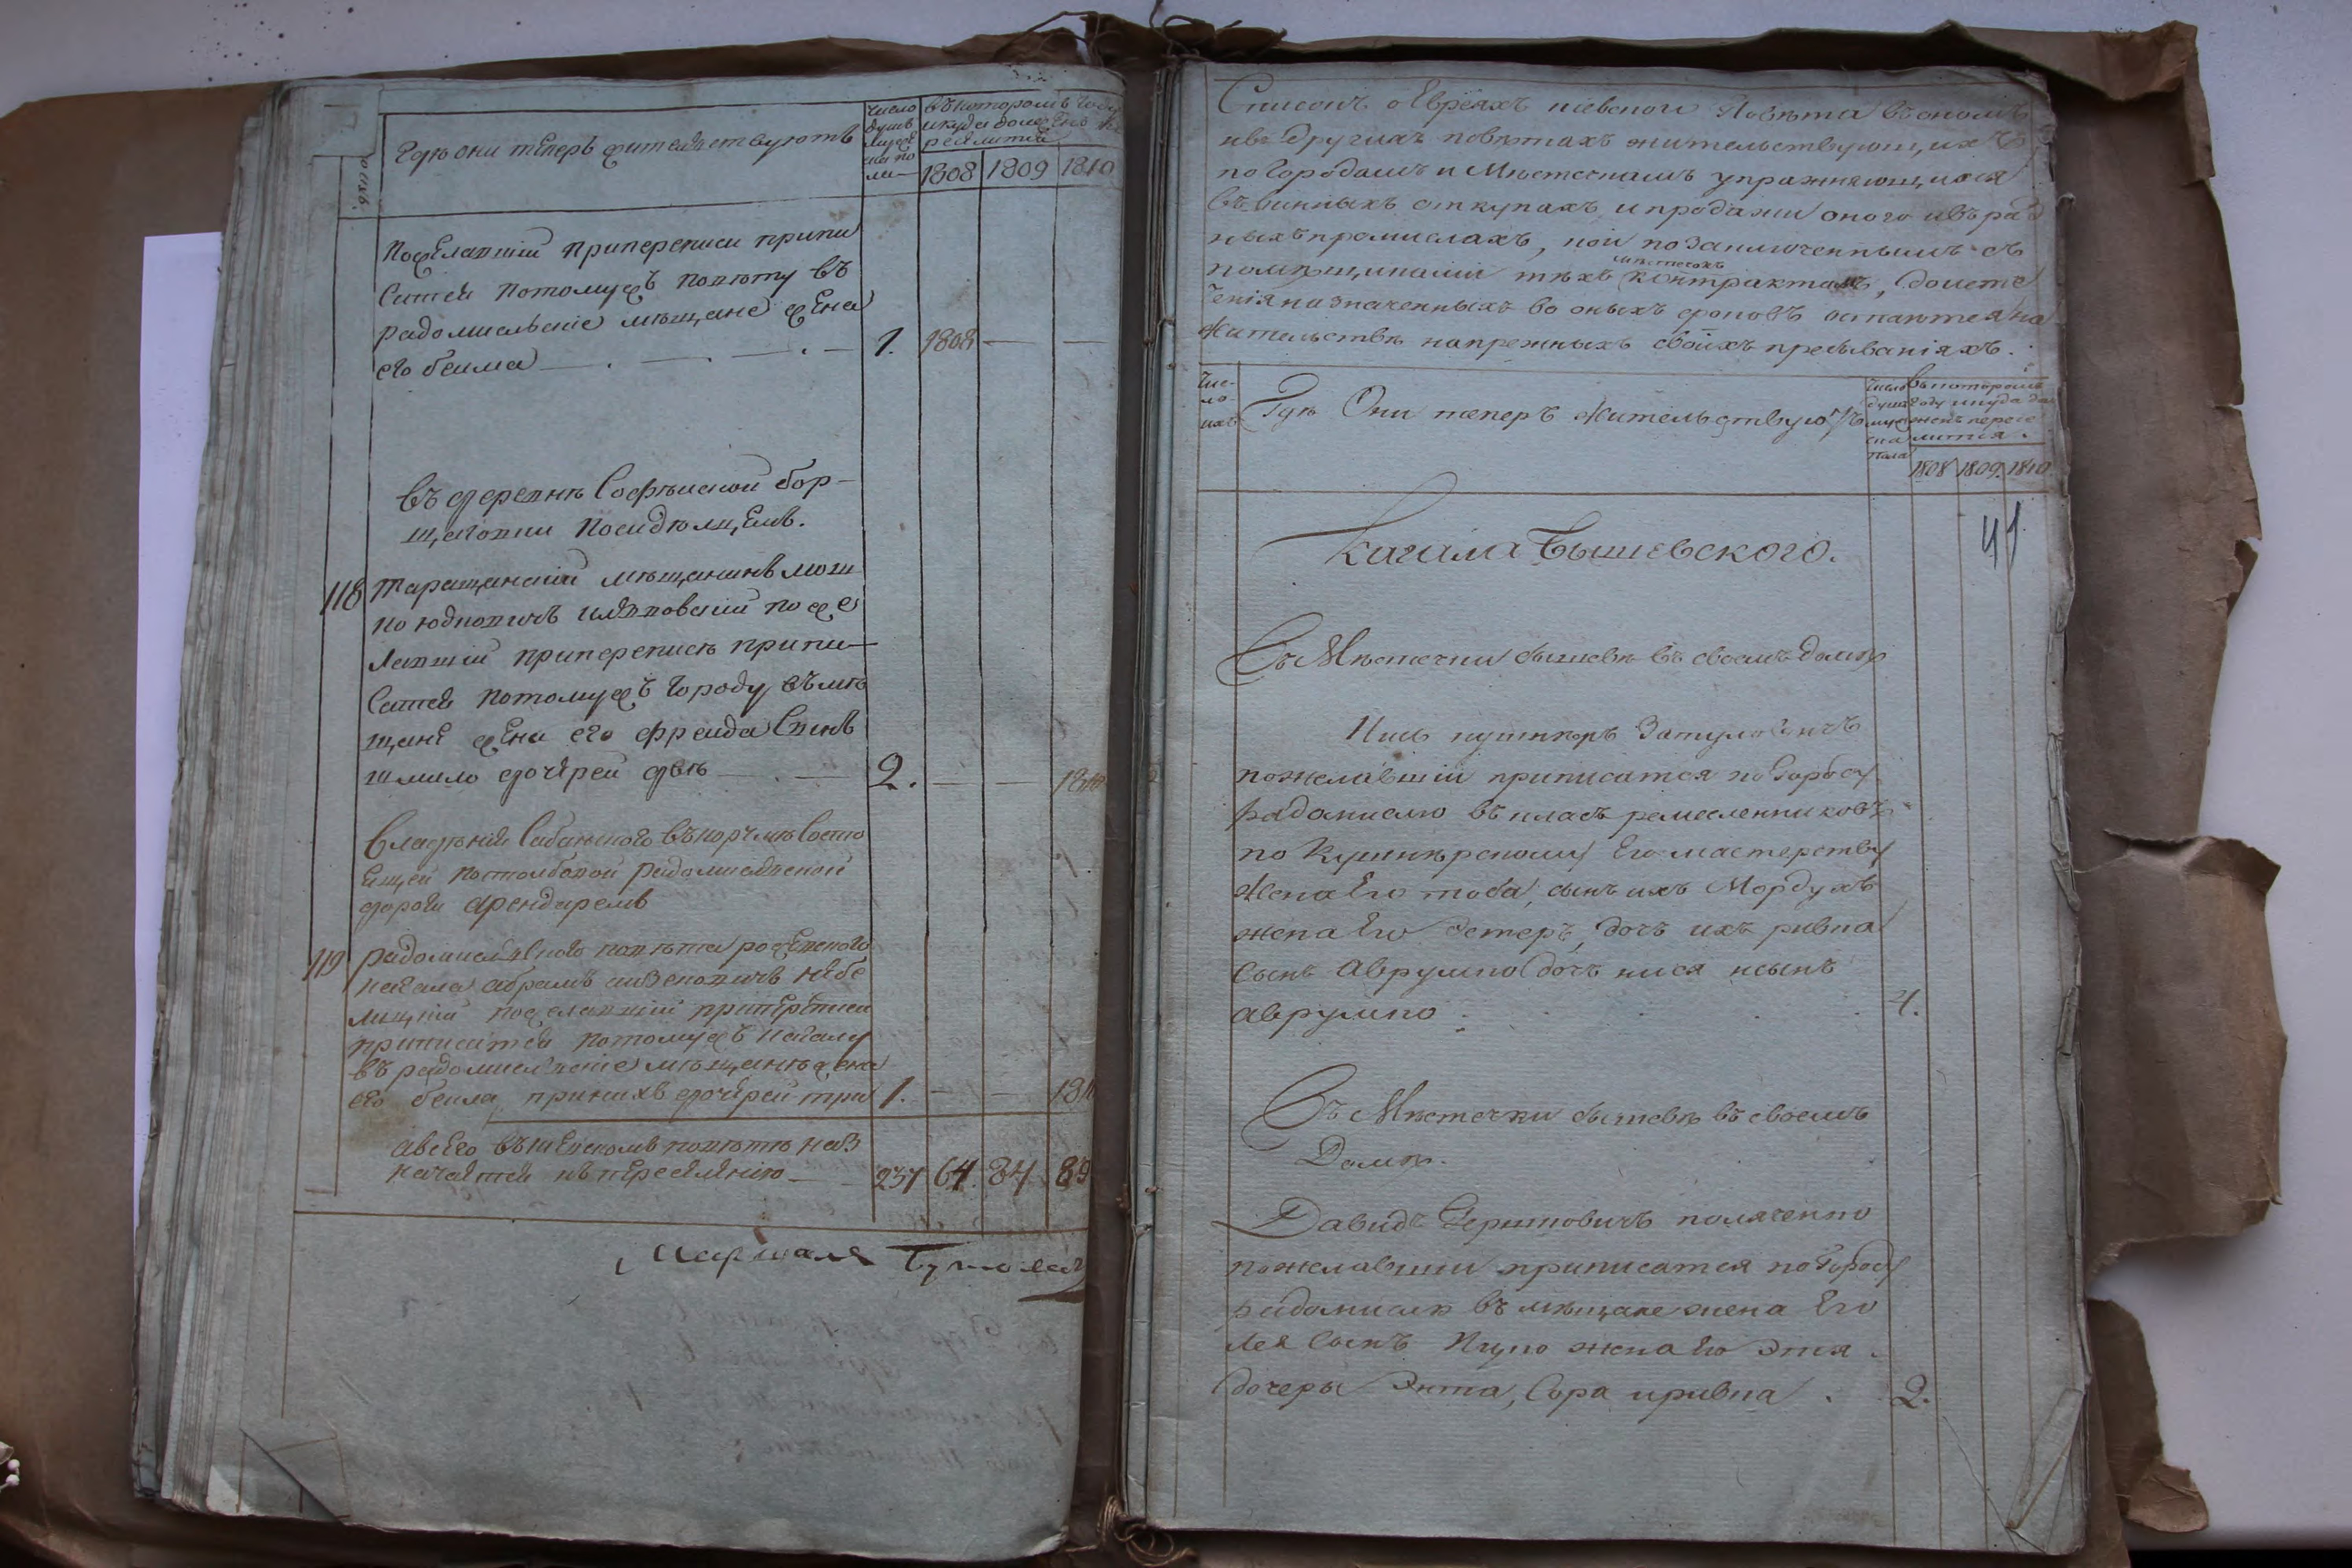 Где они теперь жительствуютъ
число
душъ
мужес
ска по
ла
въ которомъ году
и куда долженъ пе
реселится
1808 1809 1810
пожелавшій при переписи припи
сатся потомужъ повѣту въ
радомисльскіе мѣщане жена
его бейла
1. 1808
въ деревнѣ Софѣиской бор-
щаговки посидѣлщемъ.
118 таращанскій мѣщанинъ мош
ко юдковичъ поже
лавшій при переписѣ припи-
сатся потомужъ городу въ мѣ
щане жена его фрейда сынъ
шмило дочерей двѣ
2. 1810
владѣнія Сабанского въ корчмѣ состо
ящей по столбовой радомислской
дороги арендаремъ
119 радомислского повѣта
кагала абрамъ
пожелавшій при переписи
приписатся потомужъ кагалу
въ радомислскіе мѣщанѣ жена
его бейла при нихъ дочерей три
1. 1810
а всего въ Кіевскомъ повѣтѣ наз
начается къ переселенію
237 64. 84 89
Маршалъ
Списокъ о Евреяхъ кіевского Повѣта въ ономъ
и въ другихъ повѣтахъ жительствующихъ
по городамъ и Мѣстечкамъ упражняющихся
въ винныхъ откупахъ и продажи оного и въ раз
ныхъ промислахъ, кои по заключеннымъ съ
мѣстечокъ
помѣщиками тѣхъ контрактамъ, до исте
ченія назначенныхъ во оныхъ сроковъ остаются на
жительствѣ на прежныхъ своихъ пребываніяхъ.
Чис-
ло
ихъ
Гдѣ Они теперъ жительствуютъ
число
душъ
муже
ска
пола
въ которомъ
году и куда до
женъ пересе
литися.
1808 1809. 1810
41
Кагала Бышевского.
Въ Мѣстечки бышевѣ въ своемъ домѣ
Ицко кушнѣръ
пожелавшій приписатся по Городу
радомислю въ класъ ремесленниковъ
по Кушнѣрскому Его мастерству
жена Его тоба, сынъ ихъ Мордухъ
жена Его Эстеръ, дочъ ихъ ривка
сынъ Аврумко дочъ нися и сынъ
аврумко
4.
Въ Мѣстечки бышевѣ въ своемъ
Домѣ.
Давидъ Гершковичъ
пожелавши приписатся по Городу
радомислю въ мѣщане жена Его
лея Сынъ Ицко жена Его Этя
дочеры Энта, Сора и ривка.
2.